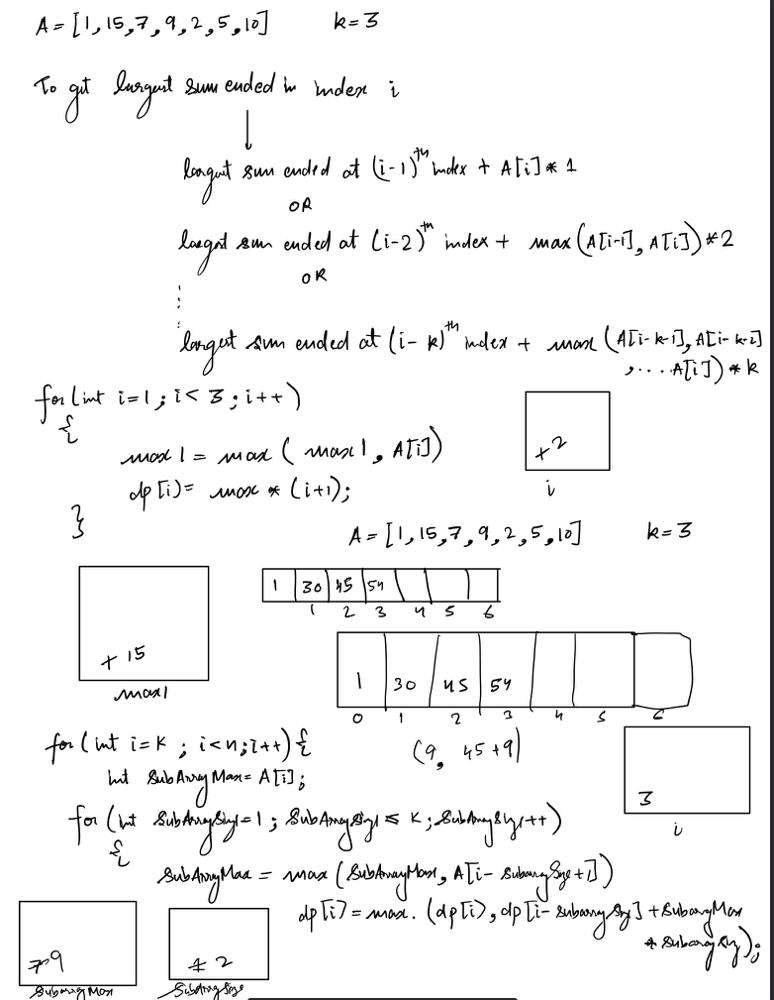 A = [1,15,7,9,2,5,10] k=3
To get largest sum ended in index i
largest sum ended at (i-1)th index + A[i]*1
OR
largest sum ended at (i-2)th index + max(A[i-1], A[i])*2
OR
largest sum ended at (i-k)th index + max(A[i-k-1], A[i-k-2]
,....A[i])*k
for(int i=1; i<3; i++)
{
max1 = max( max1, A[i])
dp[i]= max * (i+1);
}
2
i
A = [1,15,7,9,2,5,10] k=3
1 30 45 54
1 2 3 4 5 6
15
max1
1 30 45 54
0 1 2 3 4 5 6
for(int i=k ; i<n;i++) {
(9, 45+9)
int SubArrayMax= A[i];
3
i
for(int SubArraySize=1; SubArraySize ≤ k; SubArraySize++)
{
SubArrayMax = max(SubArrayMax, A[i- SubarraySize+1])
dp[i]=max. (dp[i], dp[i- SubarraySize] + SubarrayMax
* SubarraySize);
9
SubarrayMax
2
SubArraySize